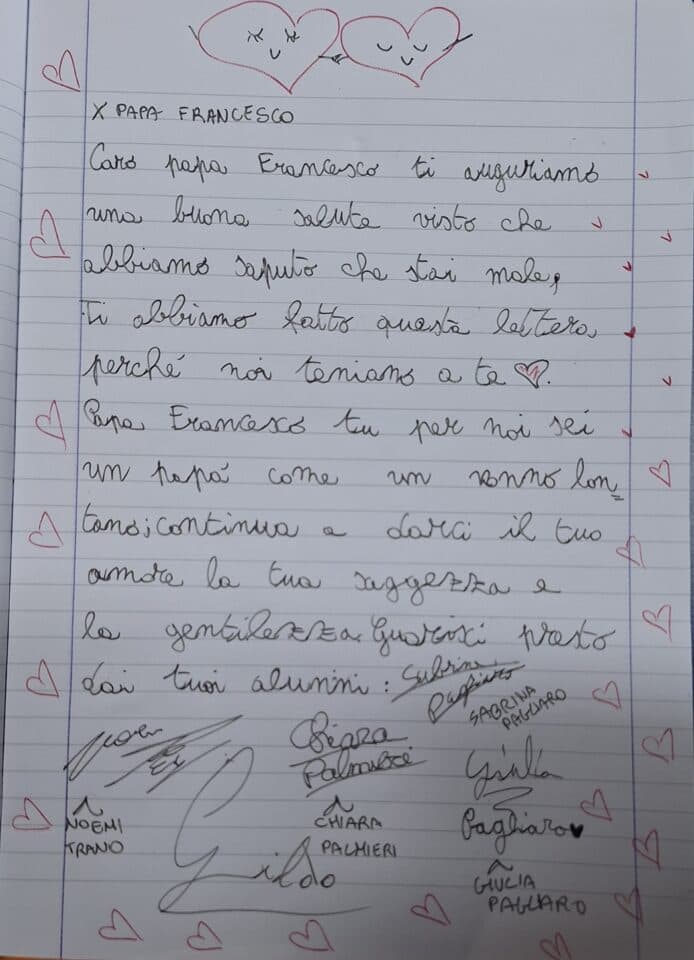 X PAPA FRANCESCO
Caro papa Francesco ti auguriamo
una buona salute visto che
abbiamo saputo che stai male,
Ti abbiamo fatto questa lettera
perché noi teniamo a te.
Papa Francesco tu per noi sei
un papà come un nonno lon=
tano; continua a darci il tuo
amore la tua saggezza e
la gentilezza. Guarisci presto
dai tuoi alunni: Sabrina
Pagliaro
SABRINA
PAGLIARO
Chiara
Palmieri
Giulia
Pagliaro
NOEMI
TRANO
CHIARA
PALMIERI
Gildo
GIULIA
PAGLIARO